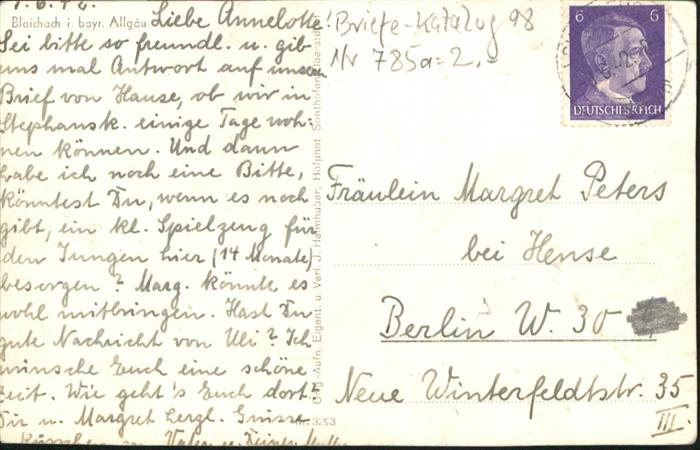 1.6.42.
Blaichach i. bayr. Allgäu
Liebe Annelotte!
Sei bitte so freundl. u. gib
uns mal Antwort auf unsern
Brief von Hause, ob wir in
Stephansk. einige Tage woh-
nen können. Und dann
habe ich noch eine Bitte,
könntest Du, wenn es noch
gibt, ein kl. Spielzeug für
den Jungen hier (14 Monate)
besorgen? Marg. könnte es
wohl mitbringen. Hast Du
gute Nachricht von Uli? Ich
wünsche Euch eine schöne
Zeit. Wie geht's Euch dort?
Dir u. Margret herzl. Grüsse
Vater u. Deine
Orig.-Aufn. Eigent. u. Verl. J. Heimhuber, Hofphot. Sonthofen
Nr. 3293
Briefe-Katalog 98
Nr 785a=2.-
6 6
DEUTSCHES REICH
Fräulein Margret Peters
bei Hense
Berlin W. 30
Neue Winterfeldtstr. 35
III.